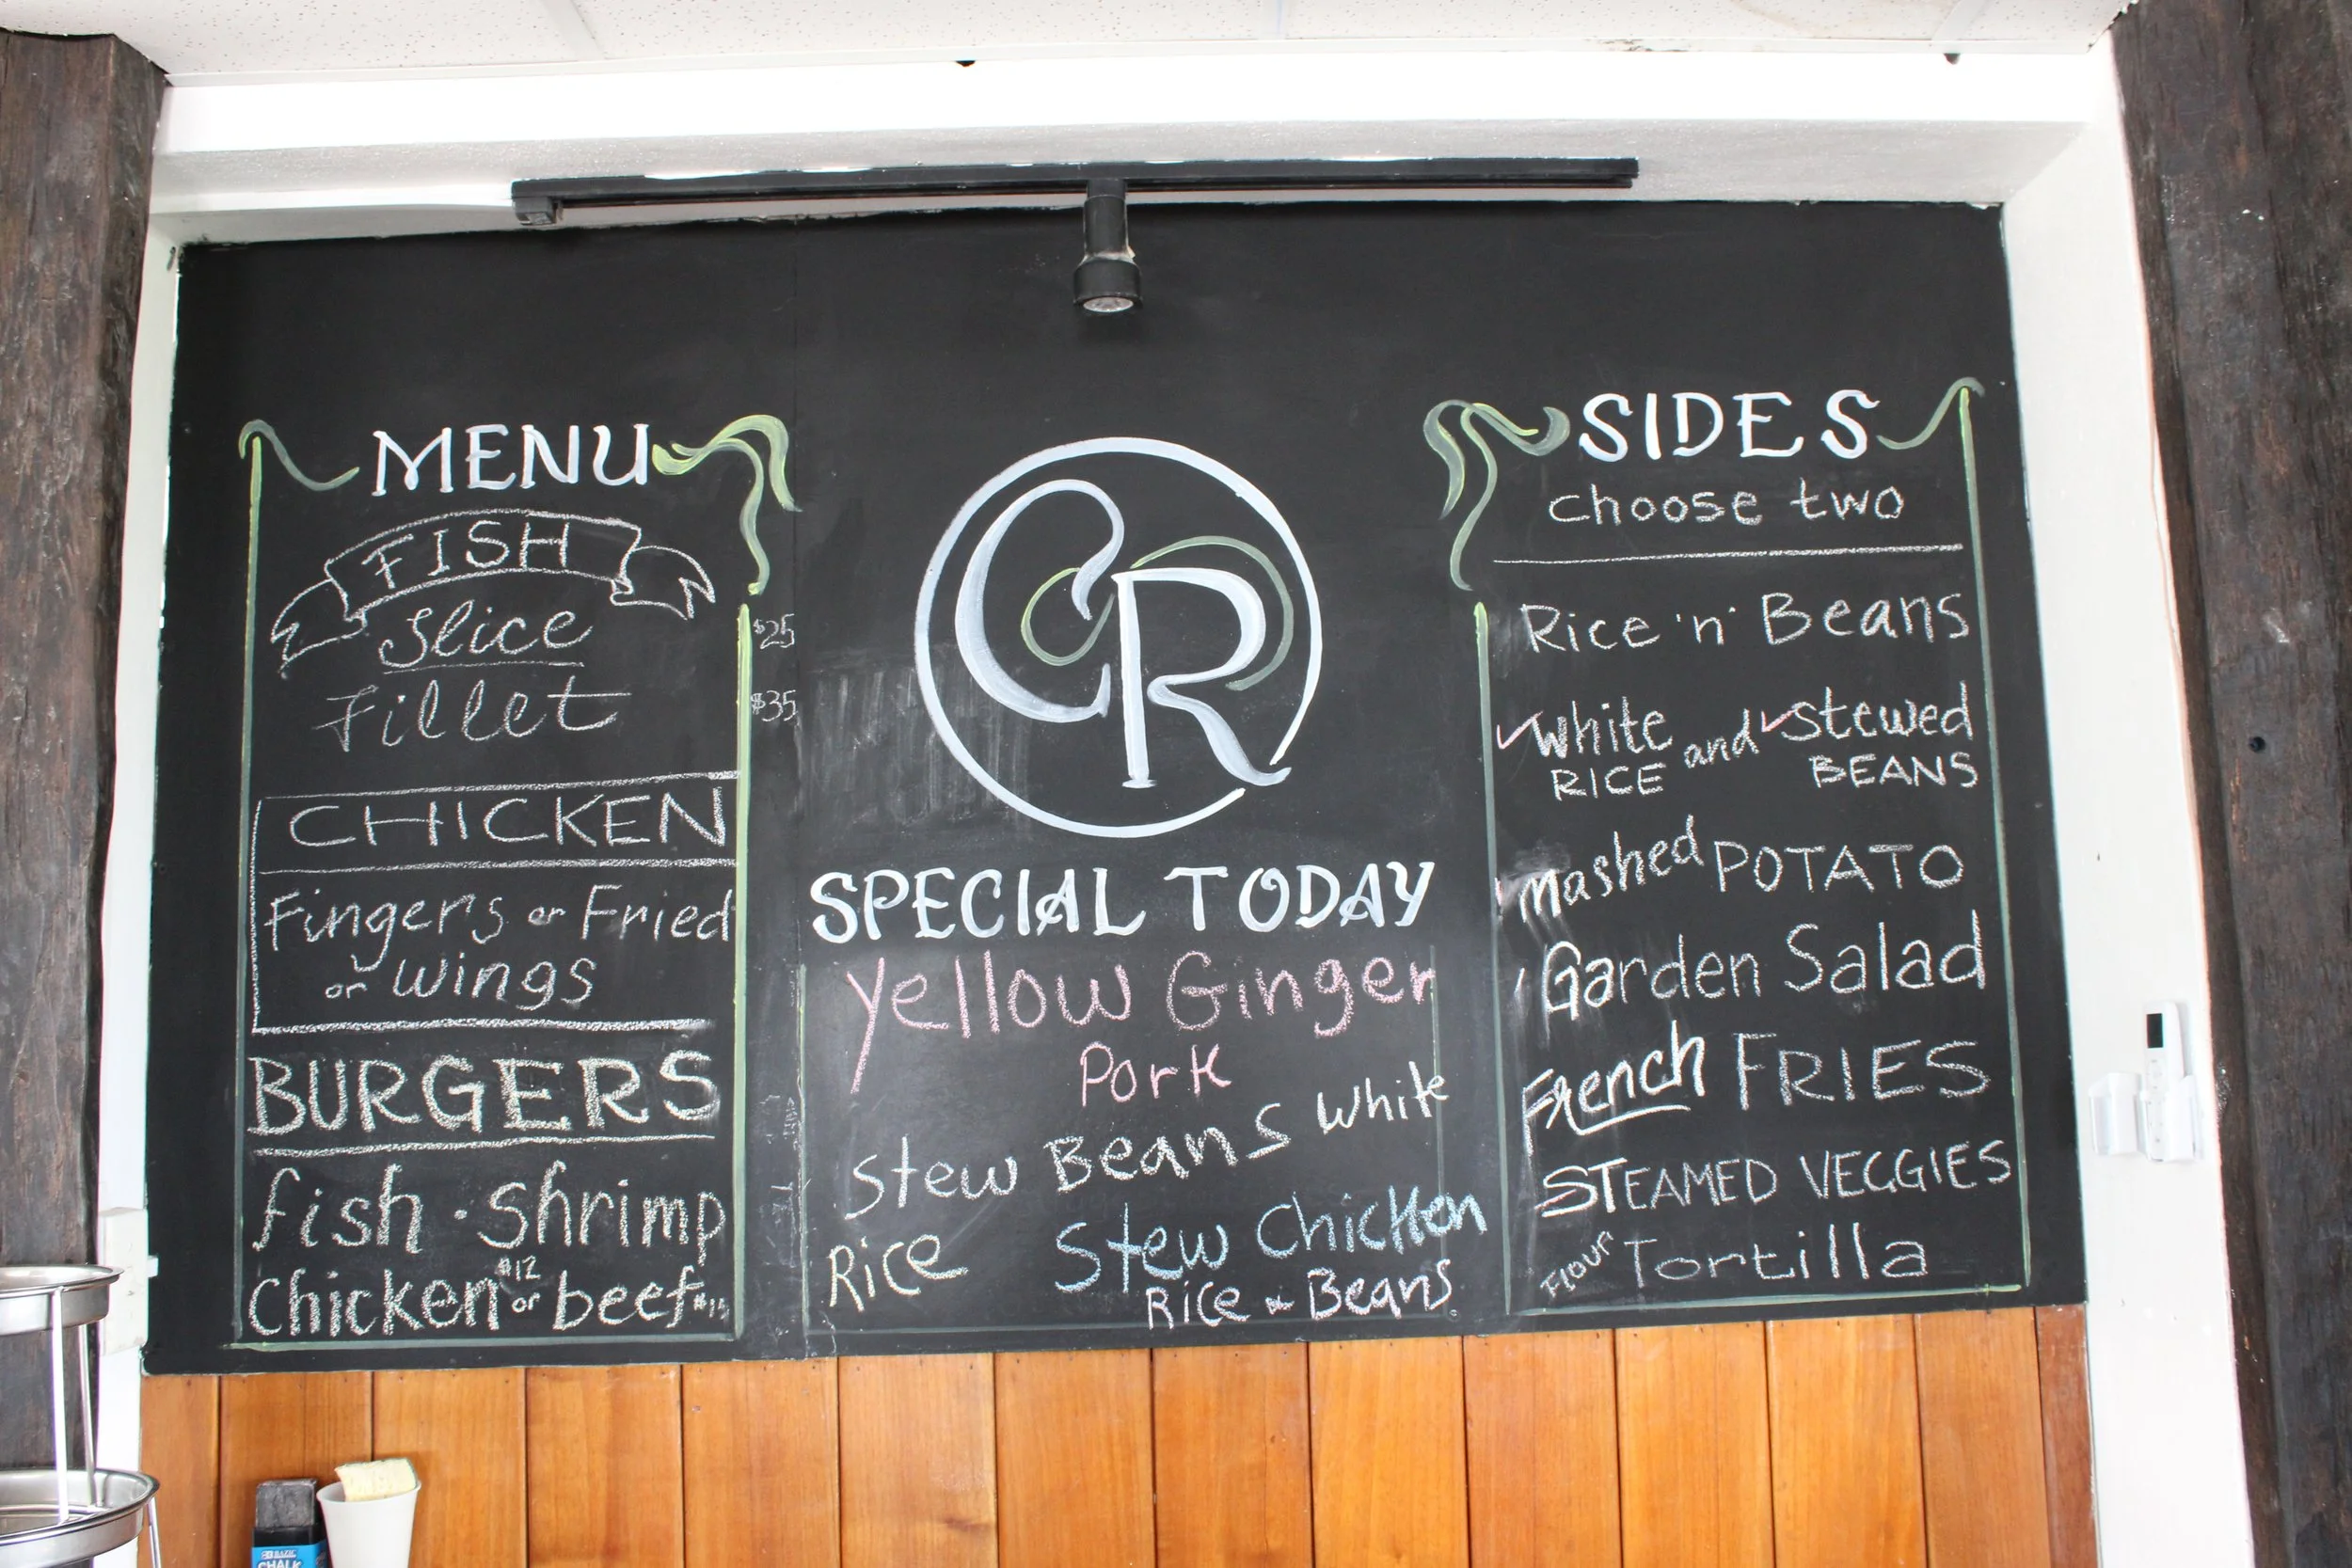 MENU
FISH
Slice $25
Fillet $35
CHICKEN
Fingers or Fried
or wings
BURGERS
fish · Shrimp
Chicken $12 or beef
CR
SPECIAL TODAY
Yellow Ginger
Pork
Stew Beans White
Rice
Stew Chicken
Rice - Beans
SIDES
choose two
Rice 'n' Beans
White and Stewed
RICE BEANS
Mashed POTATO
Garden Salad
French FRIES
STEAMED VEGGIES
Flour Tortilla
BAZIC
CHALK